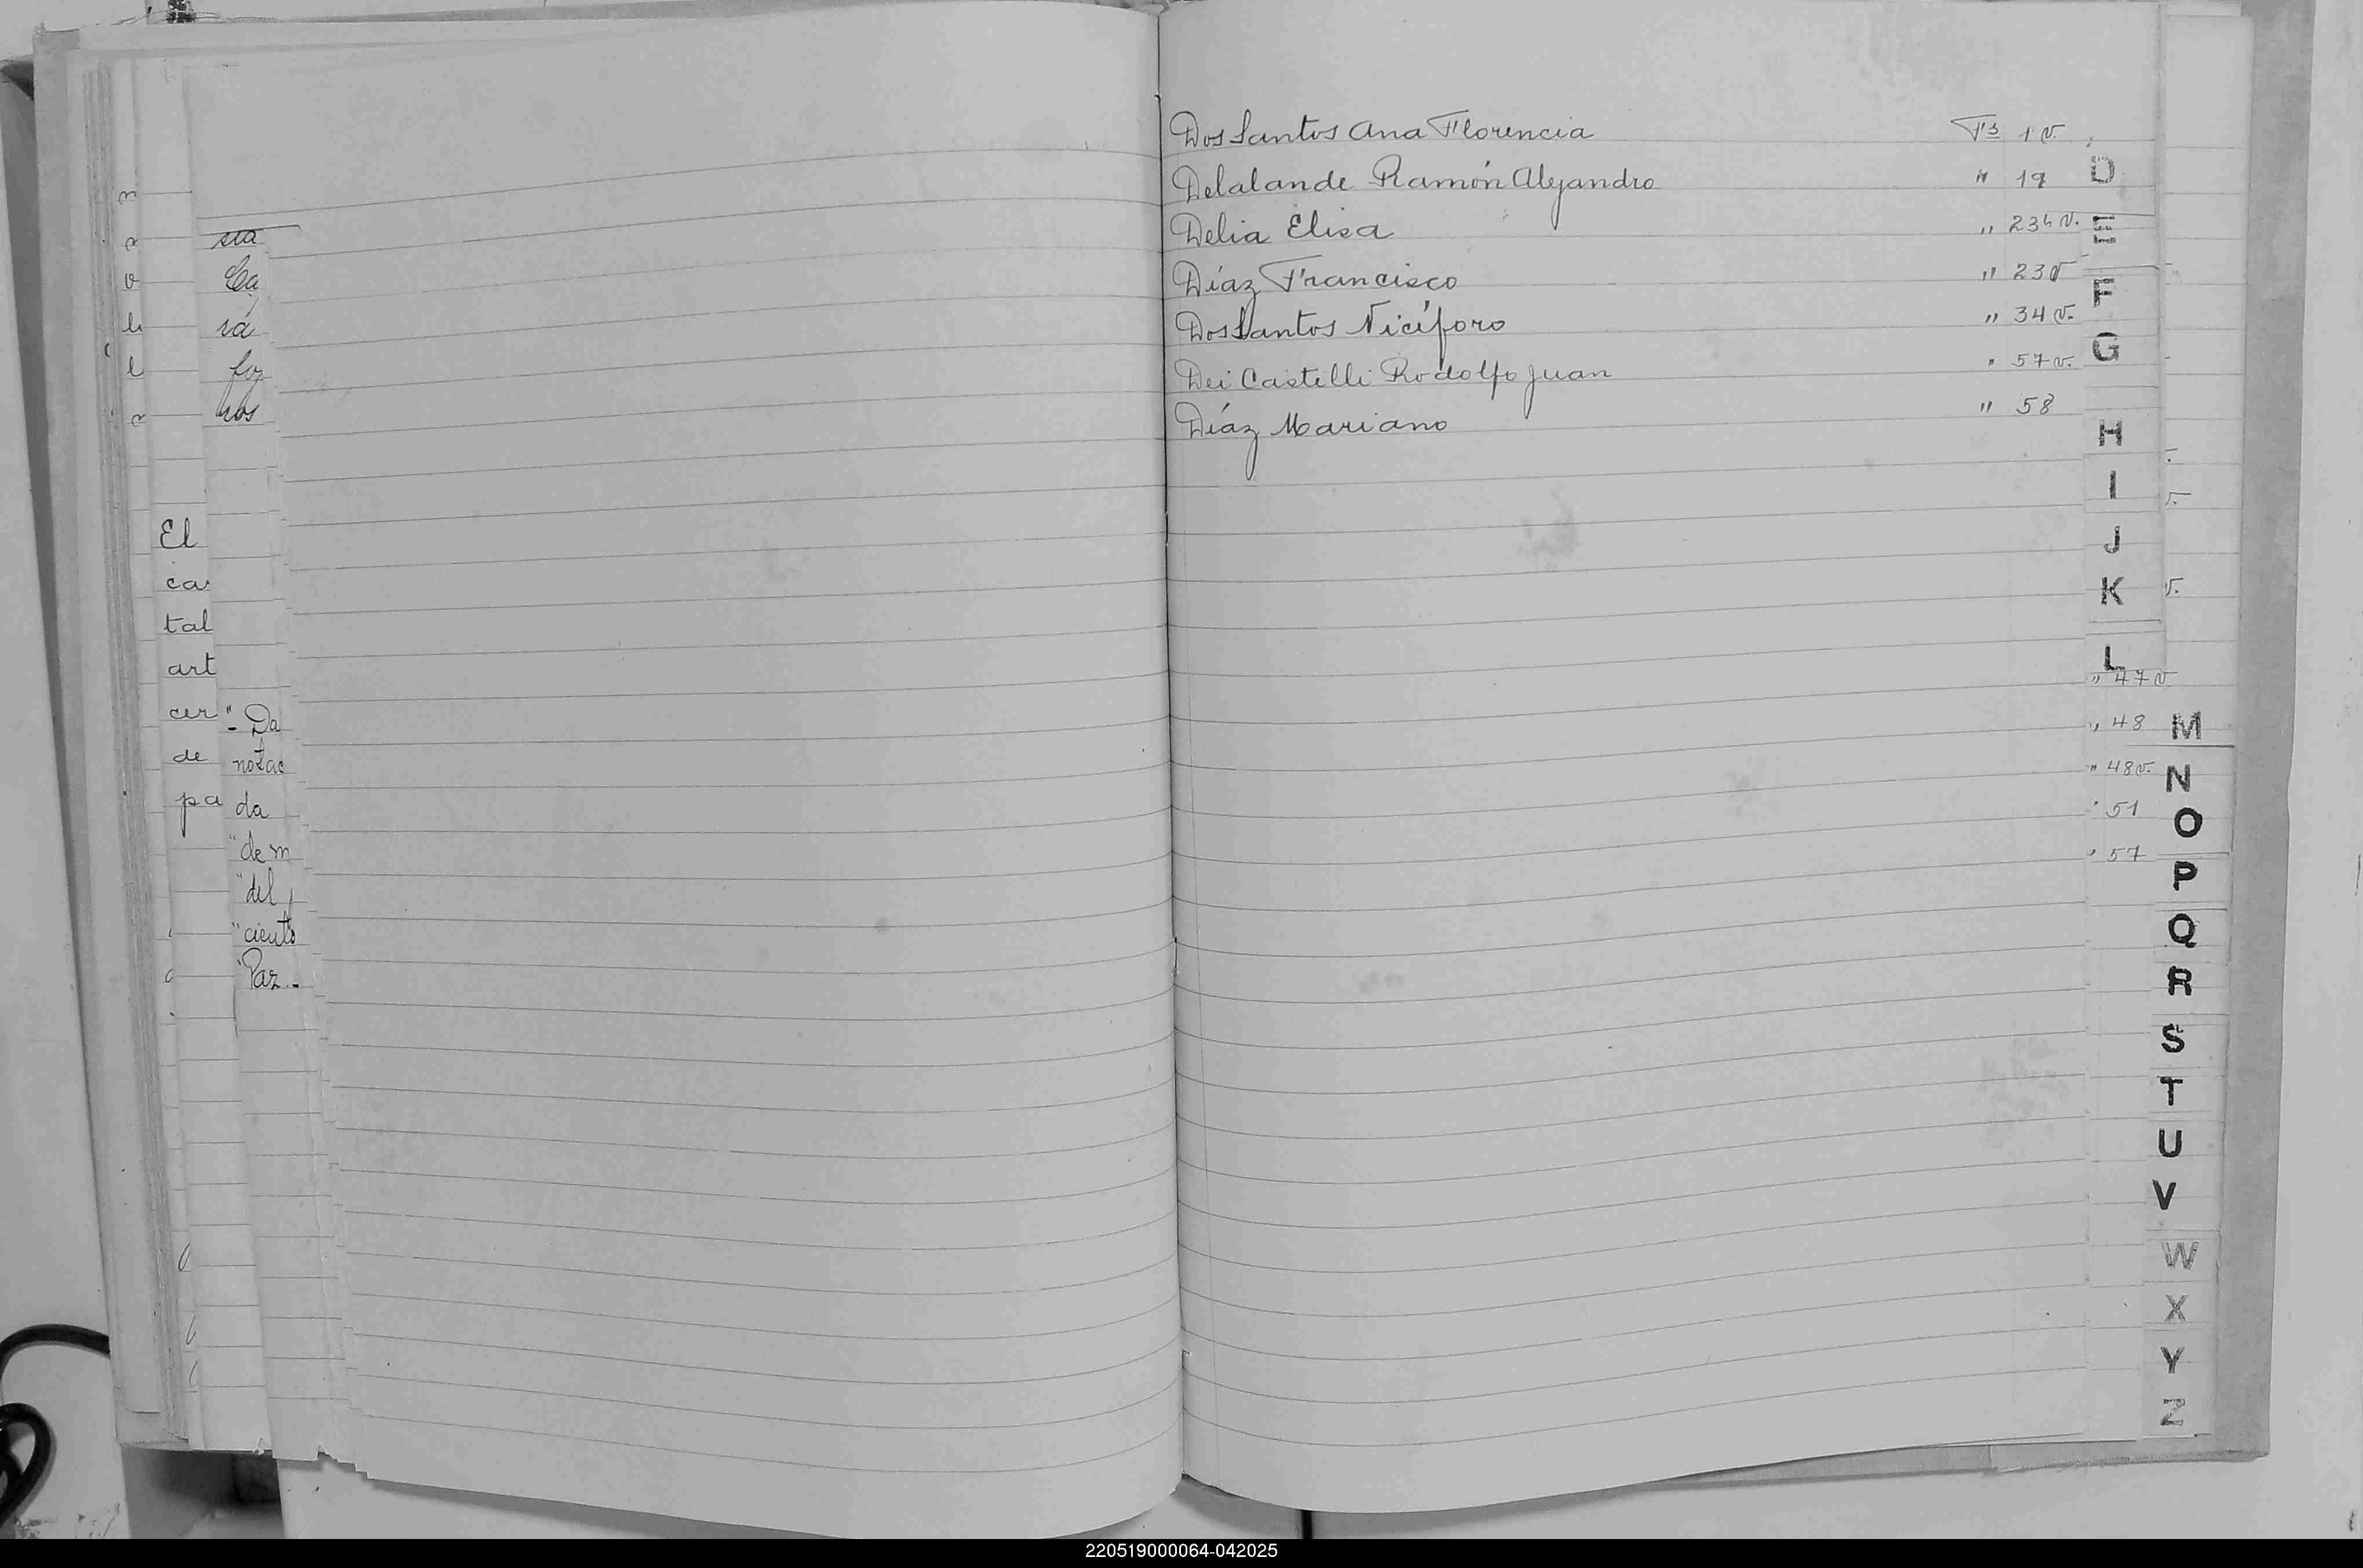 sia
Ca
ra
foz
ros
El
ca
tal
art
cer
de
pa
"- Da
notac
da
"de m
"del
"ciento
"Paz.-
Dos Santos Ana Florencia Fs 1 v.
Delalande Ramón Alejandro " 19
Delia Elisa " 23 v.
Díaz Francisco " 23 v
Dos Santos Nicéforo " 34 v.
Dei Castelli Rodolfo Juan " 57 v.
Díaz Mariano " 58
D
E
F
G
H
I
J
K
L
" 47 v
" 48
M
" 48 v.
N
" 51
O
" 57
P
Q
R
S
T
U
V
W
X
Y
Z
220519000064-042025